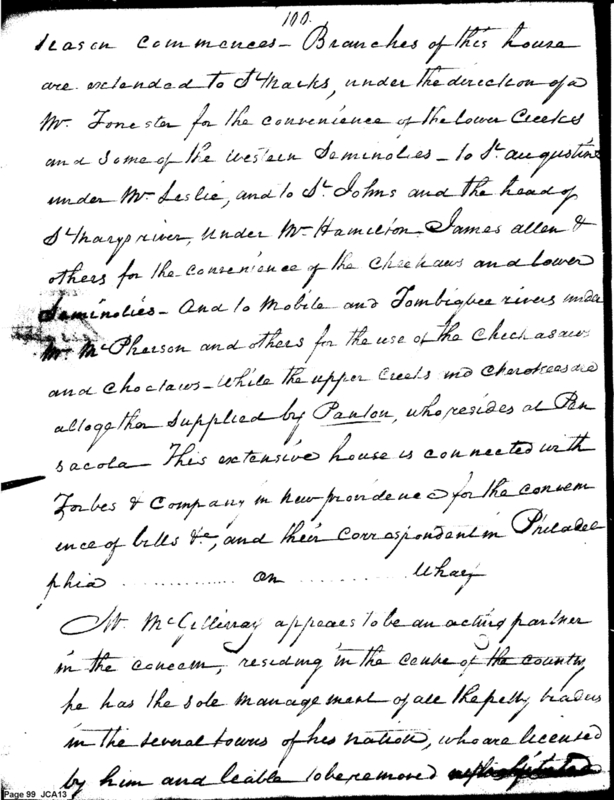 100.
season commences - Branches of this house
are extended to St Marks, under the direction of a
Mr. Forrester for the convenience of the lower Creeks
and some of the western Seminolies - to St. augustine
under Mr Leslie, and to St. Johns and the head of
St Marys river, under Mr Hamilton, James allen &
others for the convenience of the Cheehaws and lower
Seminolies - And to Mobile and Tombigbee rivers under
Mr. McPherson and others for the use of the Checkasaws
and Choctaws - While the upper Creeks and Cherokees are
altogether supplied by Panton, who resides at Pen
sacola - This extensive house is connected with
Forbes & Company in new providence for the conven
ience of bills &c, and their Correspondent in Philadel
phia .............. on .............. Wharf
Mr. McGillivray appears to be an acting partner
in the concern, residing in the centre of the country
he has the sole management of all the petty traders
in the several towns of his nation, who are licensed
by him and leable to be removed
Page 99 JCA13